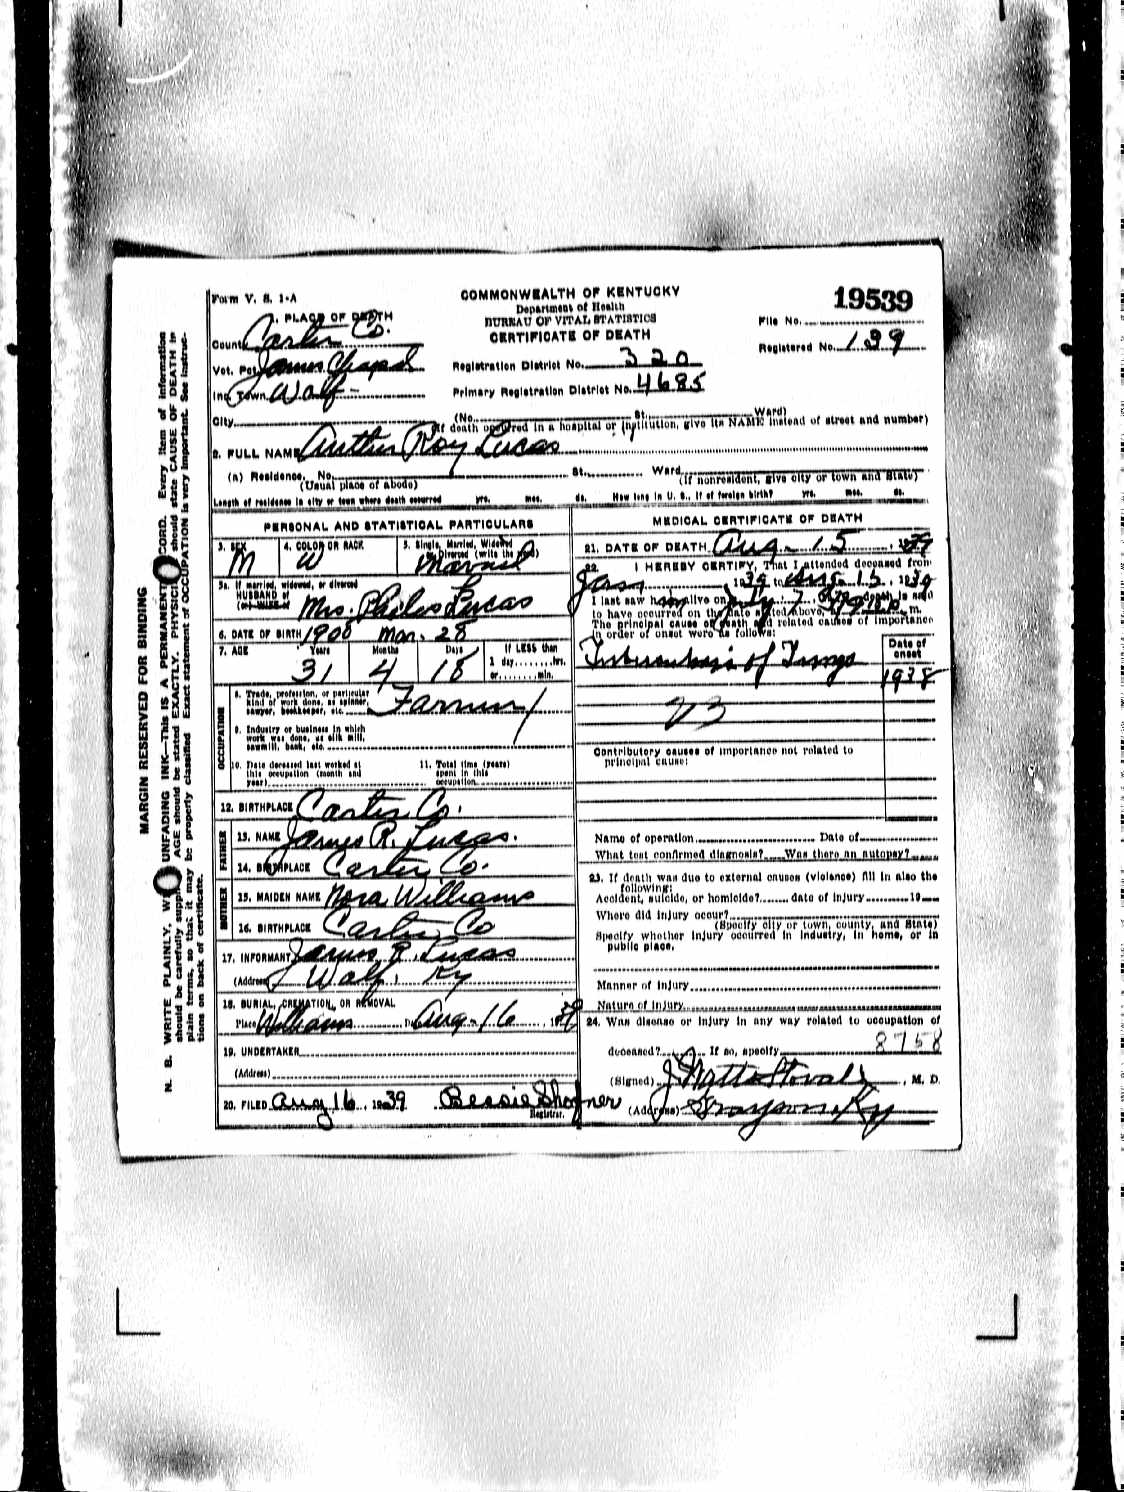 Form V. S. 1-A
COMMONWEALTH OF KENTUCKY
Department of Health
BUREAU OF VITAL STATISTICS
CERTIFICATE OF DEATH
19539
File No.
Registered No. 139
1. PLACE OF DEATH
County Carter Co.
Vot. Pct. James Chapel
Inc. Town Wolf
City
Registration District No. 320
Primary Registration District No. 4685
(No. St. Ward)
(If death occurred in a hospital or institution, give its NAME instead of street and number)
2. FULL NAME Arthur Roy Lucas
(a) Residence. No. St. Ward
(Usual place of abode) (If nonresident, give city or town and State)
Length of residence in city or town where death occurred yrs. mos. ds. How long in U. S., if of foreign birth? yrs. mos. ds.
PERSONAL AND STATISTICAL PARTICULARS
3. SEX M
4. COLOR OR RACE W
5. Single, Married, Widowed or Divorced (write the word) Married
5a. If married, widowed, or divorced
HUSBAND of
(or) WIFE of Mrs. Lucas
6. DATE OF BIRTH 1908 Mar. 28
7. AGE Years 31 Months 4 Days 18 If LESS than 1 day, hrs. or min.
OCCUPATION
8. Trade, profession, or particular
kind of work done, as spinner,
sawyer, bookkeeper, etc.
9. Industry or business in which
work was done, as silk mill,
sawmill, bank, etc.
10. Date deceased last worked at
this occupation (month and
year)
11. Total time (years)
spent in this
occupation
12. BIRTHPLACE Carter Co.
FATHER
13. NAME James R. Lucas.
14. BIRTHPLACE Carter Co.
MOTHER
15. MAIDEN NAME Nora Williams
16. BIRTHPLACE Carter Co
17. INFORMANT James R. Lucas
(Address) Wolf, Ky
18. BURIAL, CREMATION, OR REMOVAL
Place Williams Date Aug-16, 1939
19. UNDERTAKER
(Address)
20. FILED Aug 16, 1939 Bessie Shofner
Registrar.
MEDICAL CERTIFICATE OF DEATH
21. DATE OF DEATH Aug-15, 1939
22. I HEREBY CERTIFY, That I attended deceased from
1939 to Aug 15, 1939
I last saw him alive on July 7, 1939 death is said
to have occurred on the date stated above, m.
The principal cause of death and related causes of importance
in order of onset were as follows:
Date of onset
Tuberculosis of Lungs
1938
23
Contributory causes of importance not related to
principal cause:
Name of operation Date of
What test confirmed diagnosis? Was there an autopsy?
23. If death was due to external causes (violence) fill in also the
following:
Accident, suicide, or homicide? date of injury 19
Where did injury occur?
(Specify city or town, county, and State)
Specify whether injury occurred in industry, in home, or in
public place.
Manner of injury
Nature of injury
24. Was disease or injury in any way related to occupation of
deceased? If so, specify 8758
(Signed) J. Watts Stovall, M. D.
(Address) Grayson, Ky
MARGIN RESERVED FOR BINDING
N. B. WRITE PLAINLY, WITH UNFADING INK—THIS IS A PERMANENT RECORD. Every item of information
should be carefully supplied. AGE should be stated EXACTLY. PHYSICIANS should state CAUSE OF DEATH in
plain terms, so that it may be properly classified. Exact statement of OCCUPATION is very important. See instruc-
tions on back of certificate.